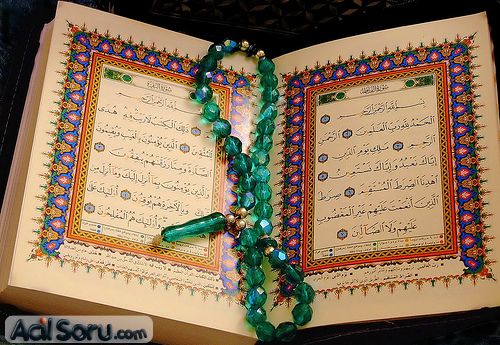 سُورَةُ الفَاتِحَةِ
بِسْمِ اللَّهِ الرَّحْمَٰنِ الرَّحِيمِ
الْحَمْدُ لِلَّهِ رَبِّ الْعَٰلَمِينَ الرَّحْمَٰنِ
الرَّحِيمِ مَٰلِكِ يَوْمِ الدِّينِ
إِيَّاكَ نَعْبُدُ وَإِيَّاكَ نَسْتَعِينُ
اهْدِنَا الصِّرَٰطَ الْمُسْتَقِيمَ صِرَٰطَ
الَّذِينَ أَنْعَمْتَ عَلَيْهِمْ غَيْرِ الْمَغْضُوبِ
عَلَيْهِمْ وَلَا الضَّآلِّينَ
سُورَةُ البَقَرَةِ
بِسْمِ اللَّهِ الرَّحْمَٰنِ الرَّحِيمِ
ذَٰلِكَ الْكِتَٰبُ لَا رَيْبَ فِيهِ هُدًى
لِّلْمُتَّقِينَ الَّذِينَ يُؤْمِنُونَ بِالْغَيْبِ وَيُقِيمُونَ
الصَّلَوٰةَ وَمِمَّا رَزَقْنَٰهُمْ يُنفِقُونَ
وَالَّذِينَ يُؤْمِنُونَ بِمَآ أُنزِلَ إِلَيْكَ وَمَآ أُنزِلَ مِن
وَبِالْءَاخِرَةِ هُمْ يُوقِنُونَ أُو۟لَٰٓئِكَ عَلَىٰ
وَأُو۟لَٰٓئِكَ هُمُ الْمُفْلِحُونَ
Acil Soru.com